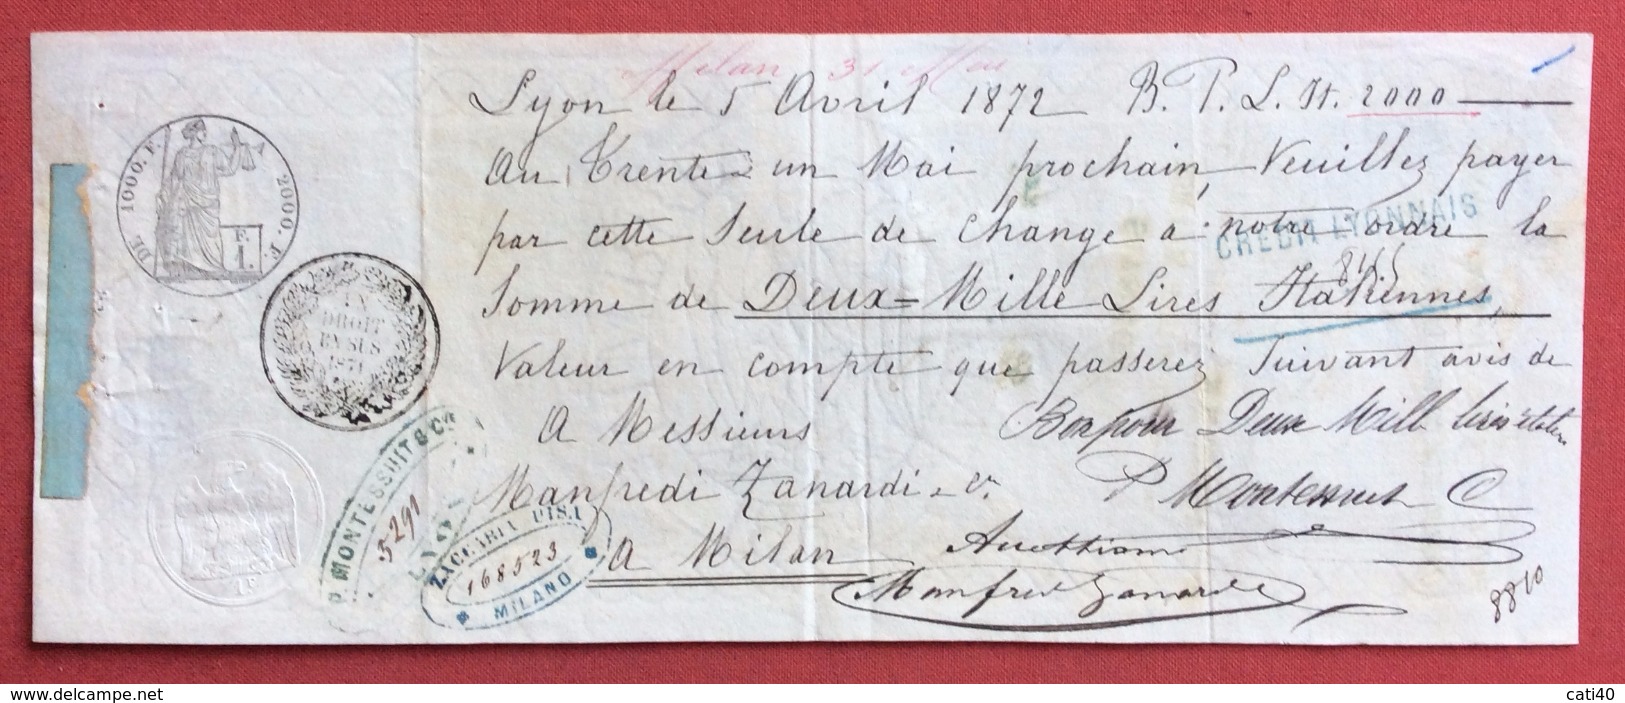 Milan 31 Mai
Lyon le 5 Avril 1872 B. P. L. It. 2000
Au Trente un Mai prochain, Veuillez payer
par cette Seule de Change a notre ordre la
CREDIT LYONNAIS
Somme de Deux=Mille Lires Italiennes,
Valeur en compte que passerez Suivant avis de
A Messieurs
Bon pour Deux Mill
Manfredi Zanardi
P Montessuit C
a Milan
Manfredi Zanardi
8810
DE 1000.F. A 2000.F.
F.
1.
UN
DROIT
EN SUS
1871
1F
P. MONTESSUIT & Cie
LYON
5291
ZACCARIA PISA
168523
MILANO
www.delcampe.net
cati40